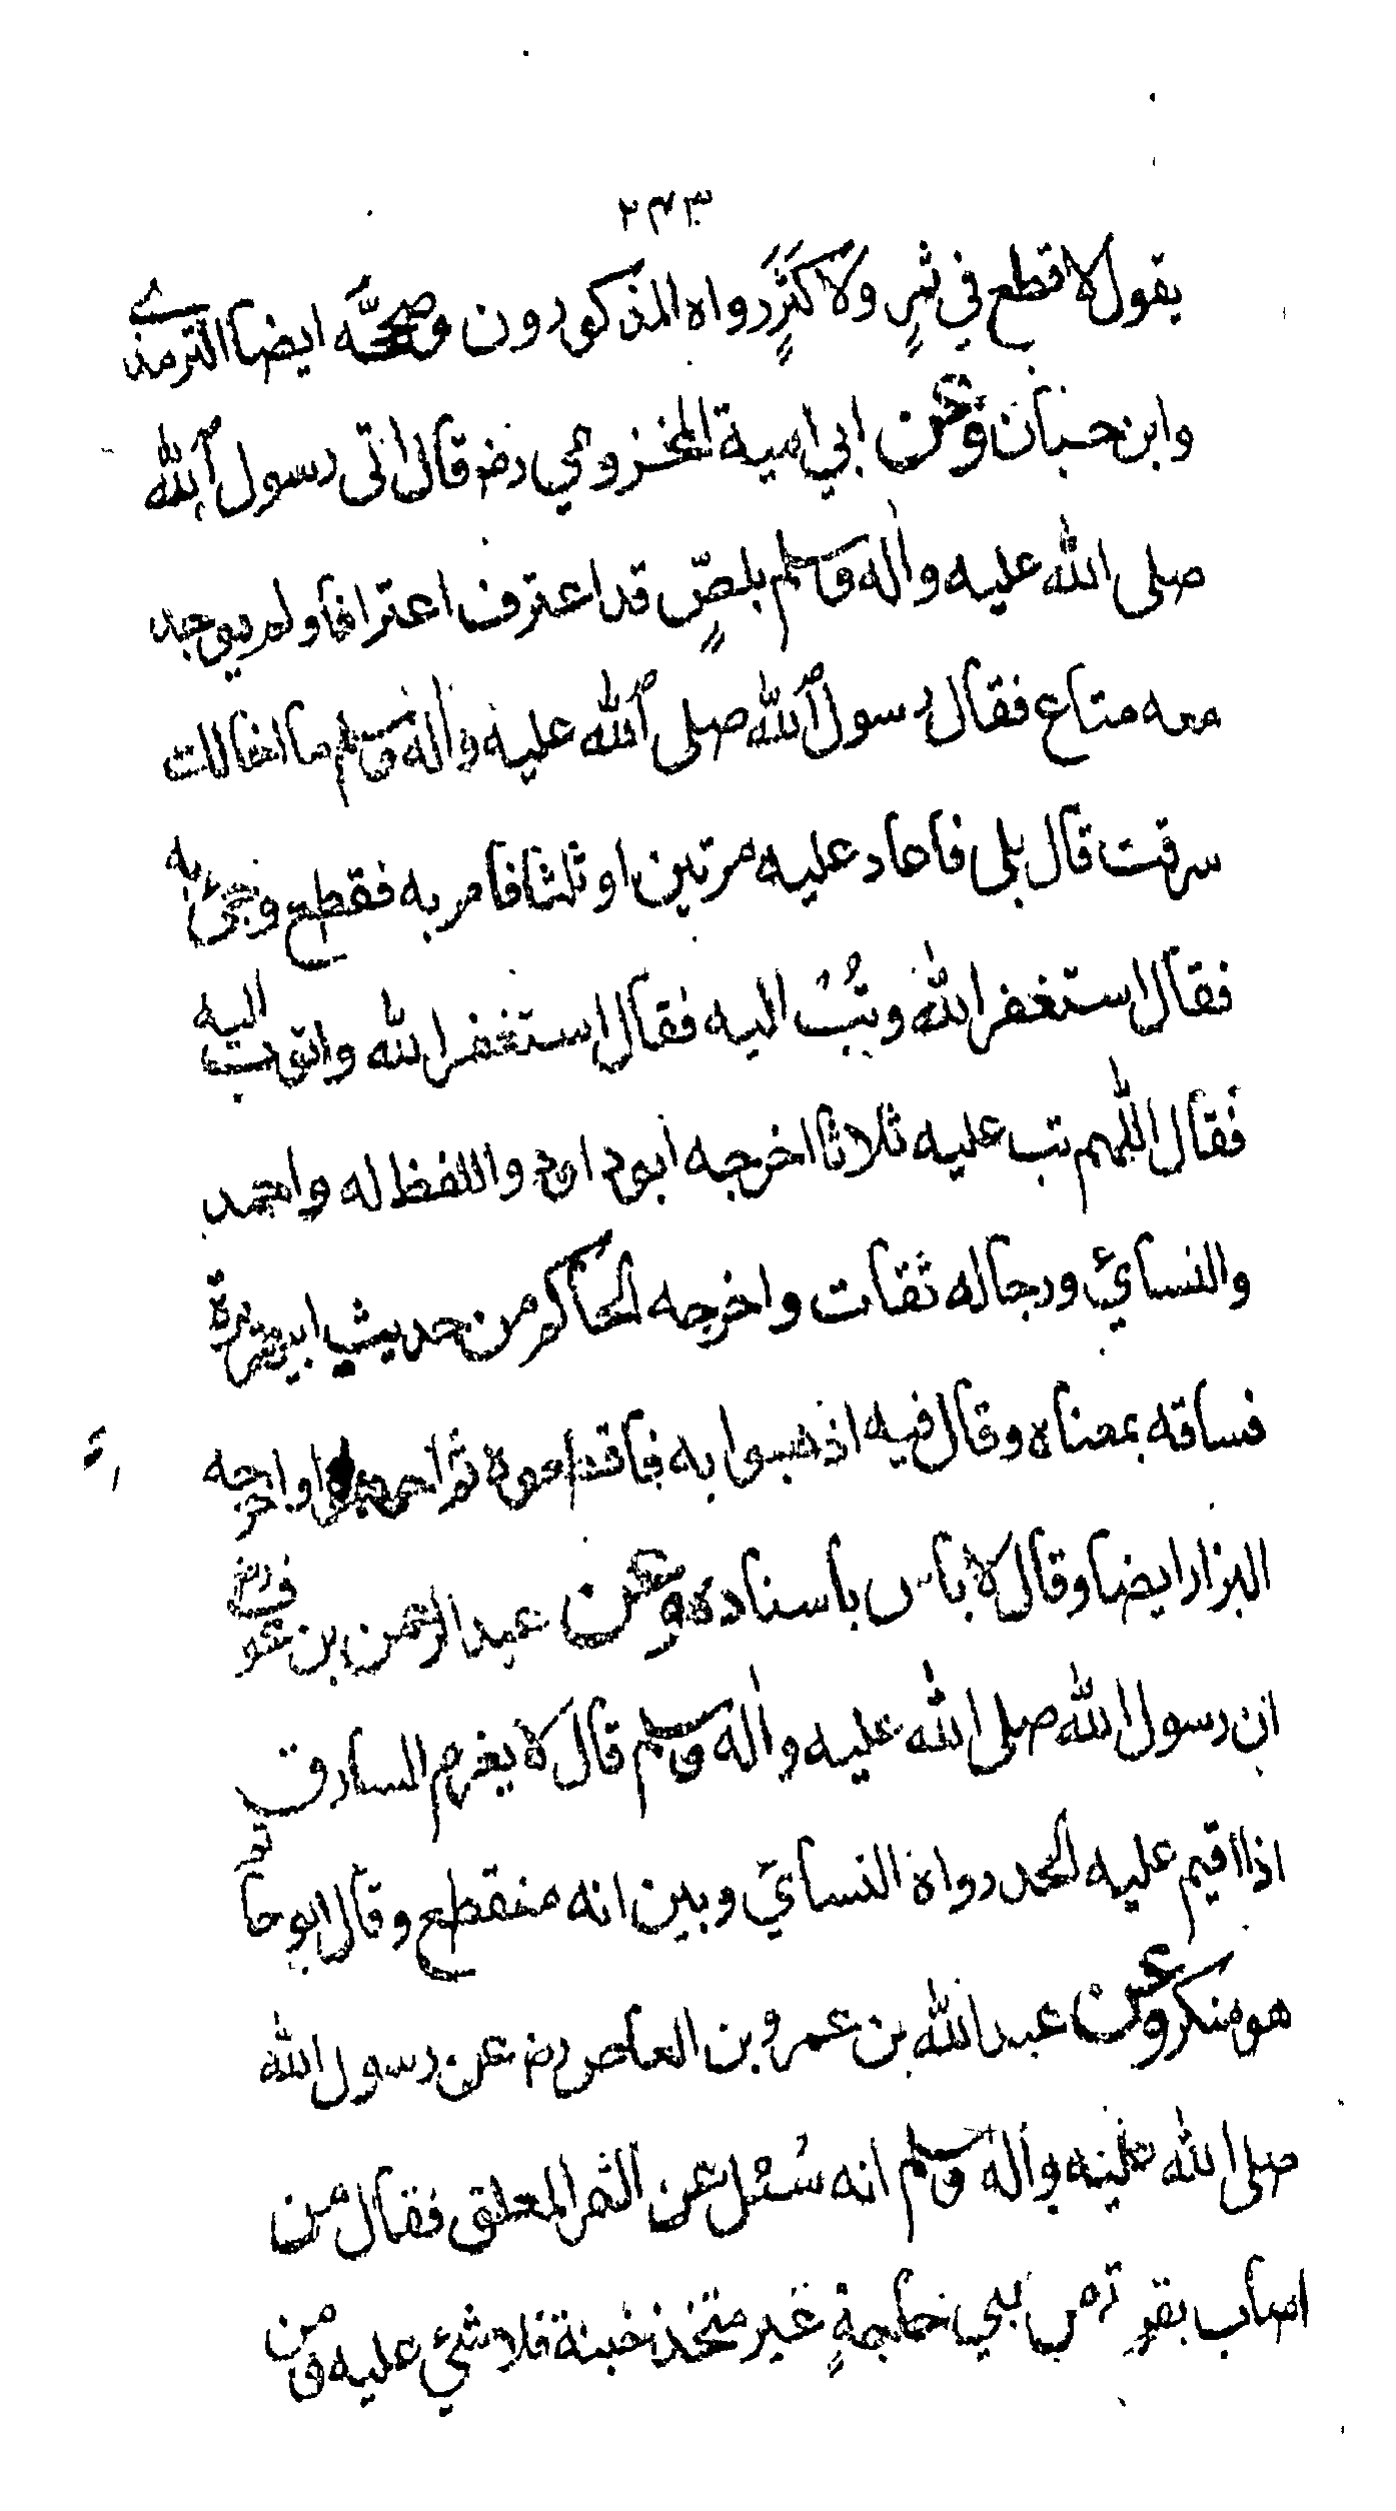 ٢٤٣
يقول لا قطع في ثمرٍ ولا كَثَرٍ رواه المذكورون وصححّه ايضا الترمذي
وابن حبان وعن ابي امية المخزومي رضـ قال اتى رسول الله
صلى الله عليه واٰله وسلم بلصٍّ قد اعترف اعترافا ولم يوجد
معه متاع فقال رسول الله صلى الله عليه واٰله وسلم ما اخالك
سرقت قال بلى فاعاد عليه مرتين او ثلثا فامر به فقطع وجئ به
فقال استغفر الله وتُبْ اليه فقال استغفر الله واتوب اليه
فقال اللهم تب عليه ثلاثا اخرجه ابوداود واللفظ له واحمد
والنسائي ورجاله ثقات واخرجه الحاكم من حديث ابيهريرة
فساقه بمعناه وقال فيه اذهبوا به فاقطعوه ثم احسموه واخرجه
البزار ايضا وقال لا باس باسناده وعن عبد الرحمن بن عوف رضـ
ان رسول الله صلى الله عليه واٰله وسلم قال لا يغرم السارق
اذا اقيم عليه الحد رواه النسائي وبين انه منقطع وقال ابو حاتم
هو منكر وعن عبد الله بن عمرو بن العاص رضـ عن رسول الله
صلى الله عليه واٰله وسلم انه سُئل عن الثمر المعلق فقال من
اصاب بفيه من ذي حاجةٍ غير متخذ خبنة فلا شئ عليه ومن